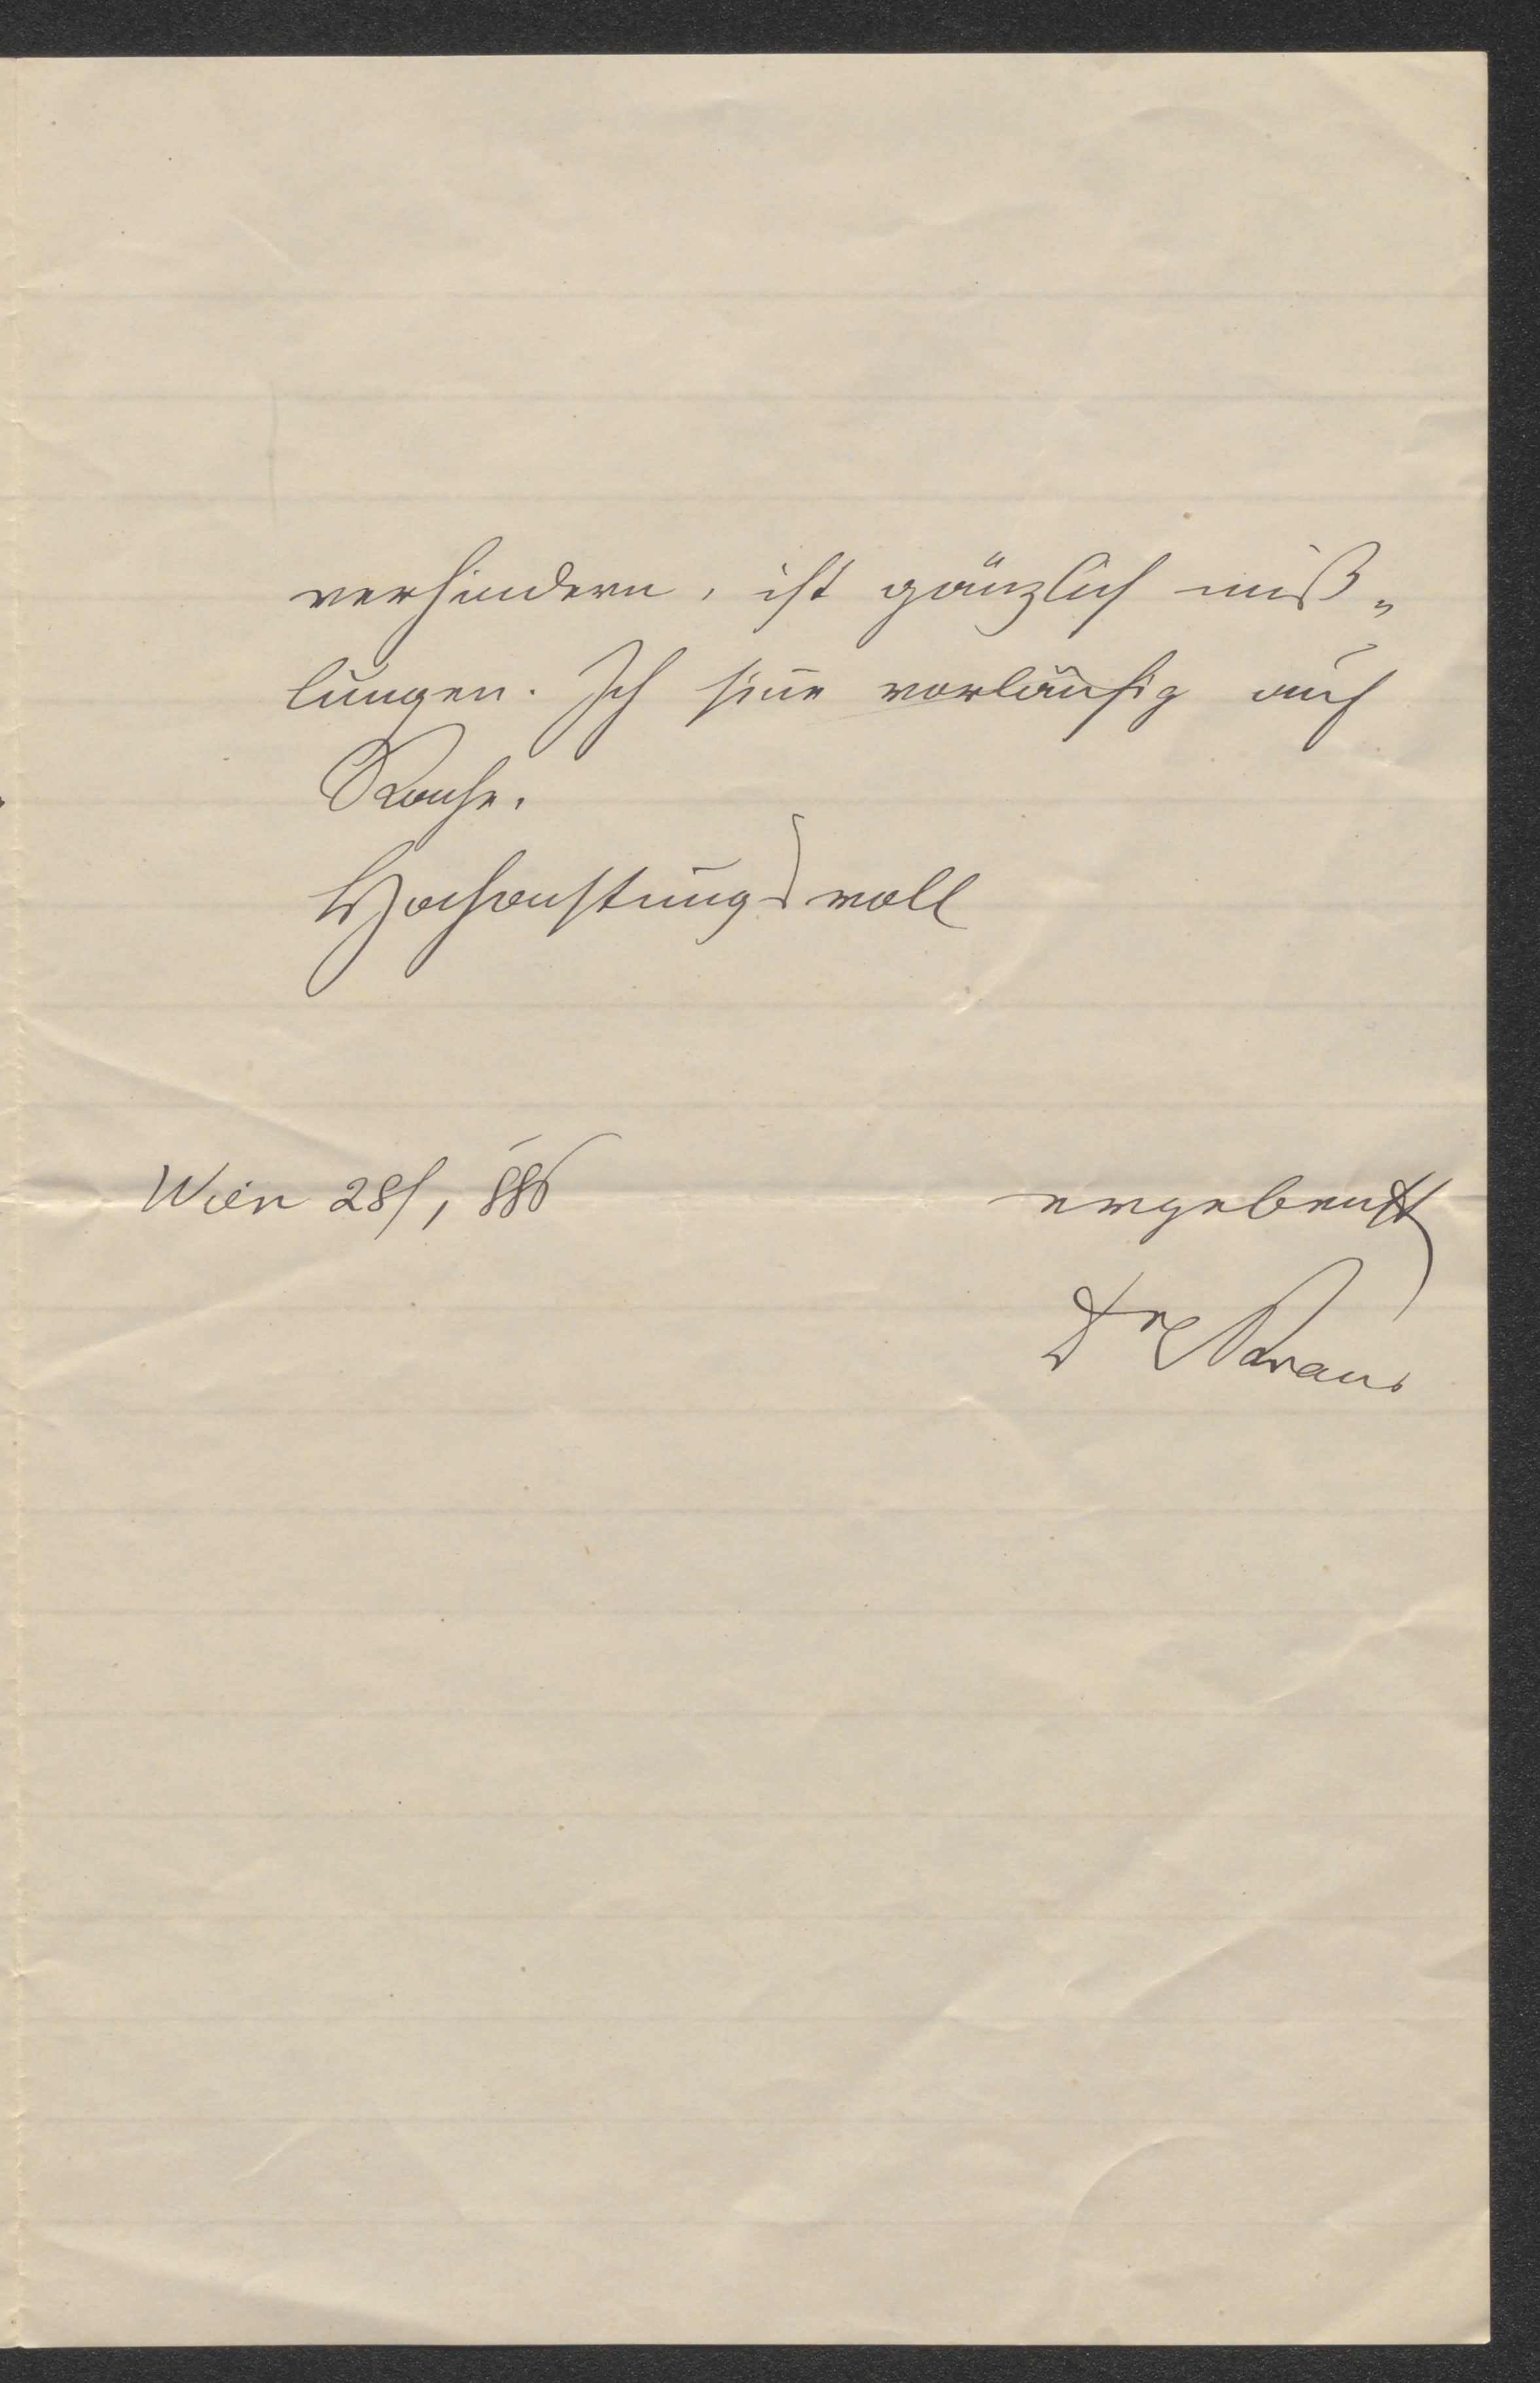 verhindern, ist gänzlich miß„
lungen. Ich sinne vorläufig auf
Rache.
Hochachtungsvoll
Wien 28/, 886 ergebenst
Dr